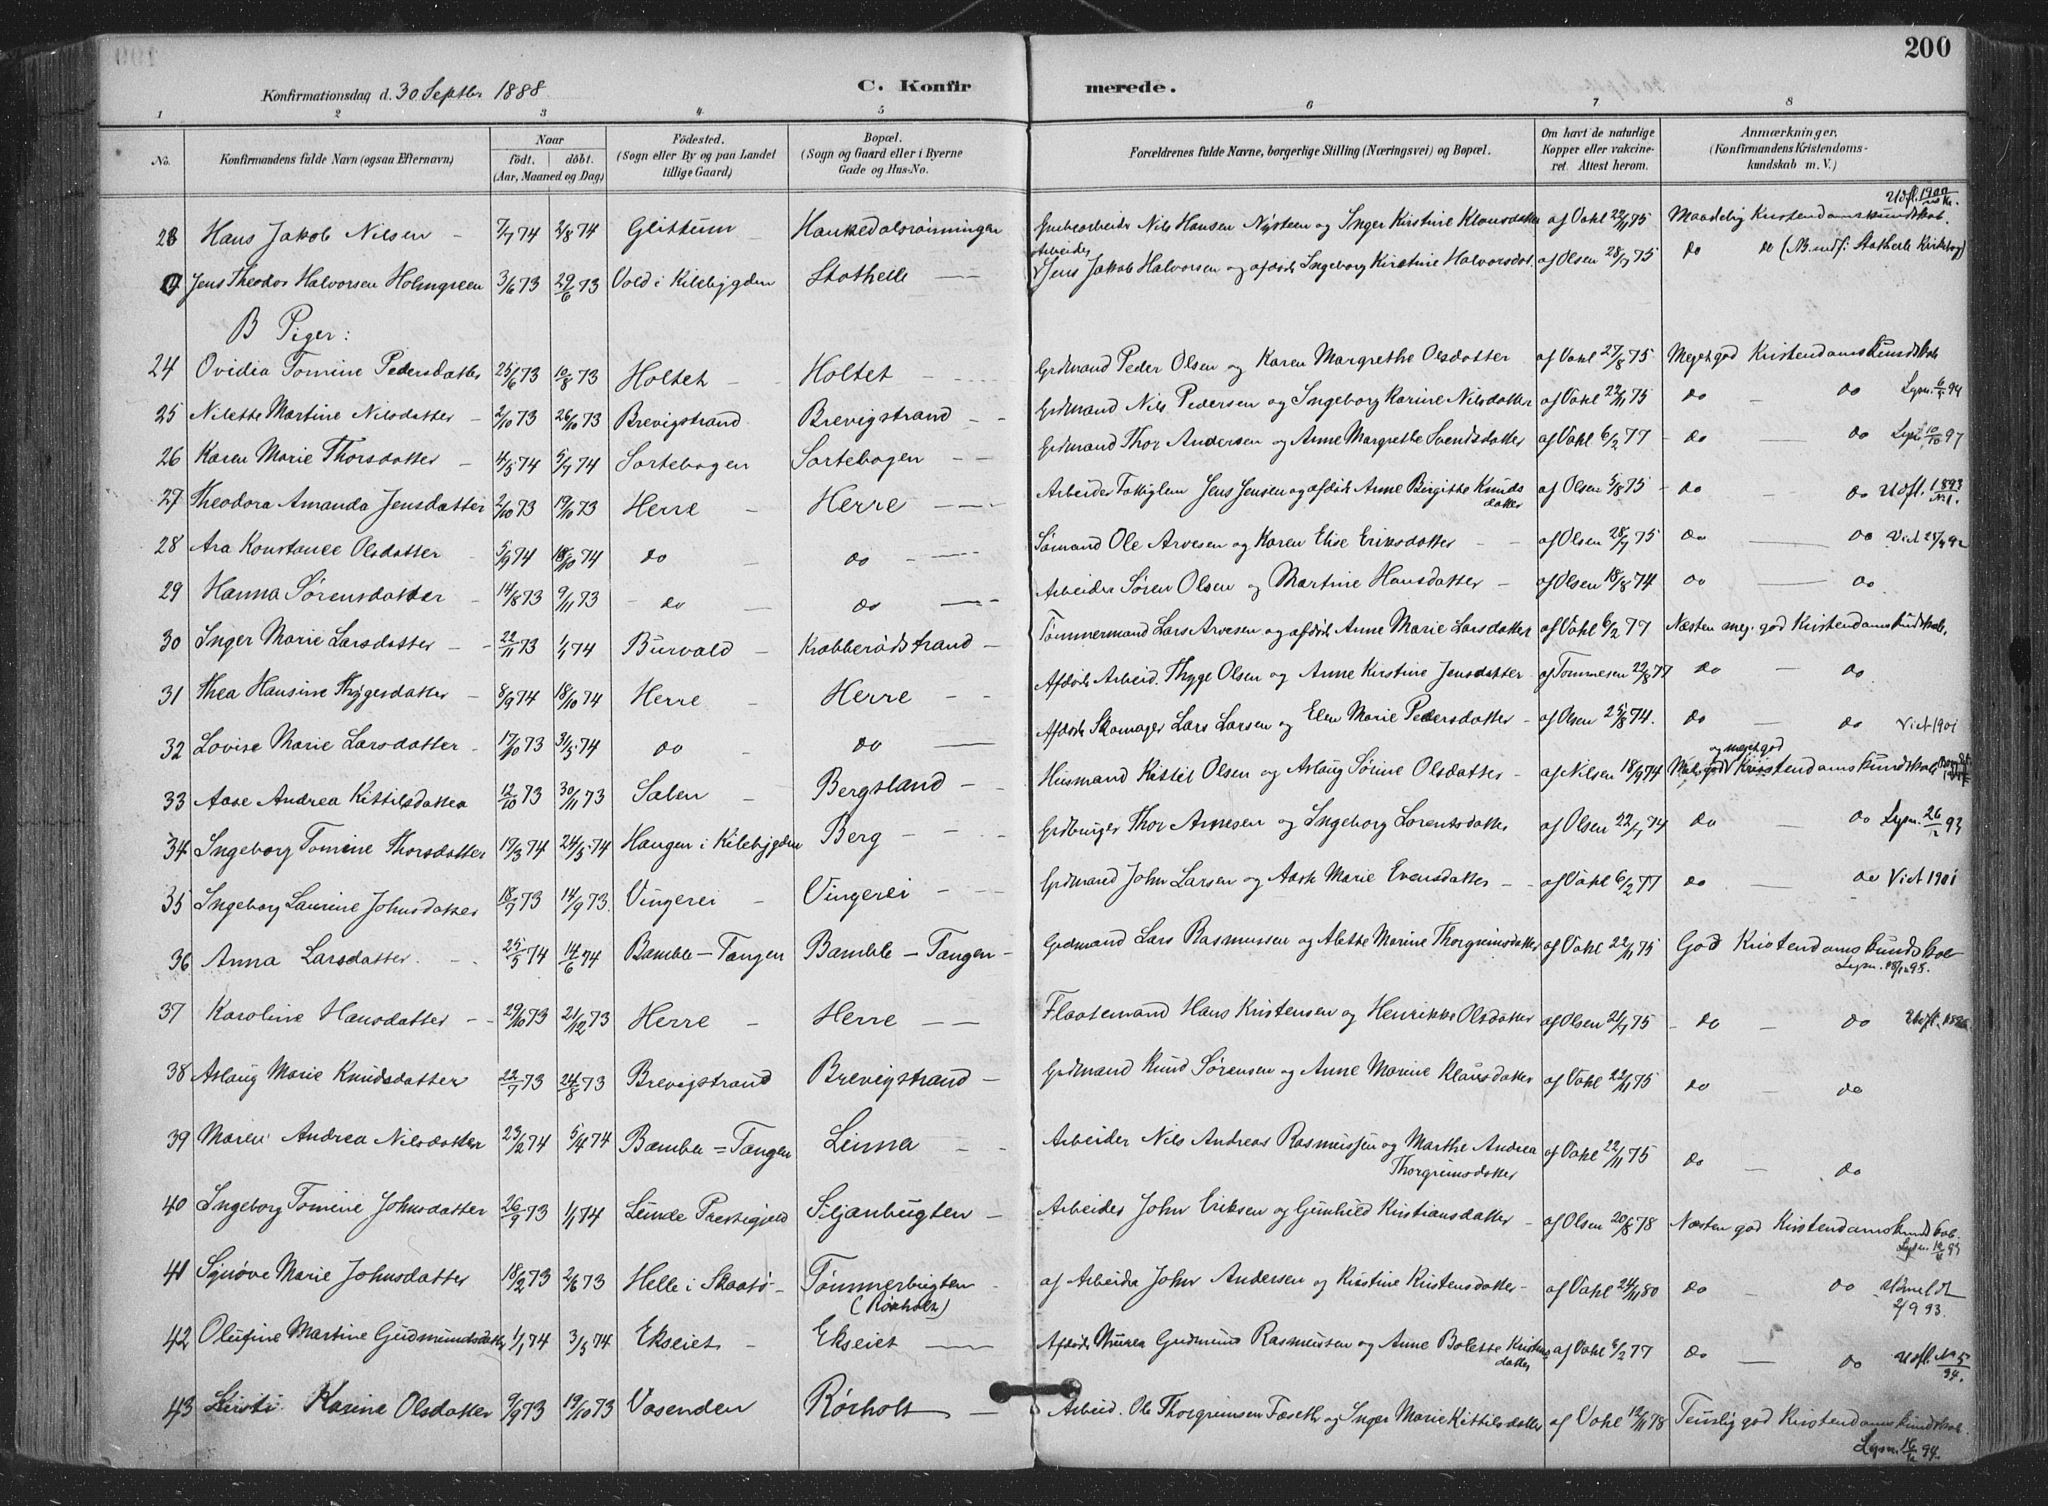 200
Konfirmationsdag d. 30 Septbr 1888
C. Konfirmerede.
1 2 3 4 5 6 7 8
No. Konfirmandens fulde Navn (ogsaa Efternavn) Naar födt. döbt. (Aar, Maaned og Dag) Födested. (Sogn eller By og paa Landet tillige Gaard) Bopæl. (Sogn og Gaard eller i Byerne Gade og Hus-No. Forældrenes fulde Navne, borgerlige Stilling (Næringsvei) og Bopæl. Om havt de naturlige Kopper eller vakcineret. Attest herom. Anmærkninger. (Konfirmandens Kristendomskundskab m. V.)
23 Hans Jakob Nilsen 7/7 74 2/8 74 Glittum Hankedalsrønningen Nils Hansen Nysteen og Inger Kirstine Klausdatter af Vahl 22/11 75 Maadelig Kristendomskundskab. Udfl. 1900
Jens Theodor Halvorsen Holmgreen 3/6 73 29/6 73 Vold i Kilebygden Stathelle Arbeider Jens Jakob Halvorsen og afdøde Ingeborg Kirstine Halvorsdat. af Olsen 28/7 75 do do (NB. indf. i Stathelle Kirkebog)
B Piger:
24 Ovidia Tomine Pedersdatter 25/6 73 10/8 73 Holtet Holtet Grdmand Peder Olsen og Karen Margrethe Olsdatter af Vahl 27/8 75 Meget god Kristendomskundskab
25 Nilette Martine Nilsdatter 2/10 73 26/10 73 Brevigstrand Brevigstrand Grdmand Nils Pedersen og Ingeborg Karine Nilsdatter af Vahl 22/11 75 do do Lysn. 94
26 Karen Marie Thorsdatter 4/5 74 5/7 74 Sortebogen Sortebogen Grdmand Thor Andersen og Anne Margrethe Svendsdatter af Vahl 6/2 77 do do Lysn. 10/10 97
27 Theodora Amanda Jensdatter 2/10 73 19/10 73 Herre Herre Arbeider Jens Jensen og afdøde Anne Birgitte Knudsdatter af Olsen 5/8 75 do do Udfl. 1893 No 1.
28 Ara Konstance Olsdatter 5/9 74 18/10 74 do do Sømand Ole Arvesen og Karen Elise Eriksdatter af Olsen 28/7 75 do do Viet
29 Hanna Sørensdatter 14/8 73 9/11 73 do do Arbeider Søren Olsen og Martine Hansdatter af Olsen 18/8 74 do do
30 Inger Marie Larsdatter 22/11 73 1/1 74 Burvald Krabberødstrand Tømmermand Lars Arvesen og afdøde Anne Marie Larsdatter af Vahl 6/2 77 Næsten meg. god Kristendomskundskab.
31 Thea Hansine Thygesdatter 8/9 74 18/10 74 Herre Herre Afdøde Arbeid. Thyge Olsen og Anne Kirstine Jensdatter af Tommesen 22/8 77 do do
32 Lovise Marie Larsdatter 17/10 73 31/5 74 do do Afdøde Skomager Lars Larsen og Elen Marie Pedersdatter af Olsen 25/8 74. do do Viet 1901
33 Aase Andrea Kittilsdatter 12/10 73 30/11 73 Salen Bergsland Husmand Kittil Olsen og Aslaug Sørine Olsdatter af Nilsen 18/9 74 og meget god Kristendomskundskab
34 Ingeborg Tomine Thorsdatter 17/3 74 24/5 74 Haugen i Kilebygden Berg Grdbruger Thor Arnesen og Ingeborg Lorentsdatter af Olsen 22/7 74 do do Lysn. 26 93
35 Ingeborg Laurine Johnsdatter 18/7 73 14/9 73. Vingerei Vingerei Grdmand John Larsen og Aase Marie Evensdatter af Vahl 6/2 77 do do Viet 1901
36 Anna Larsdatter 25/5 74 14/6 74 Bamble-Tangen Bamble-Tangen Grdmand Lars Rasmussen og Alette Marine Thorgrimsdatter af Vahl 22/11 75 God Kristendomskundskab Lysn. 98.
37 Karoline Hansdatter 29/10 73 21/12 73 Herre Herre Flaatemand Hans Kristensen og Henrikke Olsdatter af Olsen 21/7 75 do do Udfl.
38 Aslaug Marie Knudsdatter 22/7 73 24/8 73 Brevigstrand Brevigstrand Grdmand Knud Sørensen og Anne Marine Klausdatter af Vahl 22/11 75 do do
39 Maren Andrea Nilsdatter 23/2 74 5/4 74 Bamble=Tangen Linna Arbeider Nils Andreas Rasmussen og Marthe Andrea Thorgrimsdatter af Vahl 22/11 75 do do
40 Ingeborg Tomine Johnsdatter 26/9 73 1/1 74 Lunde Præstegjeld Siljanbugten Arbeider John Eriksen og Gunhild Kristiansdatter af Olsen 20/8 78 Næsten god Kristendomskundskab. Lysn. 93
41 Synøve Marie Johnsdatter 18/2 73 2/6 73 Helle i Skaatø Tømmerbugten (Rørholt) af Arbeider John Andersen og Kirstine Kristensdatter af Vahl 24/11 80 do do Udmeldt 2/9 93.
42 Olufine Martine Gudmundsdatter 1/1 74 3/5 74 Ekseiet Ekseiet Afdøde Murer Gudmund Rasmussen og Anne Bolette Kristensdatter af Vahl 6/2 77 do do Udfl. No 5 94.
43 Kirsti Karine Olsdatter 9/9 73 19/10 73 Vasenden Rørholt Arbeid. Ole Thorgrimsen Fæseth og Inger Marie Kittilsdatter af Vahl 12/11 78 Temlig god Kristendomskundskab. Lysn. 94.